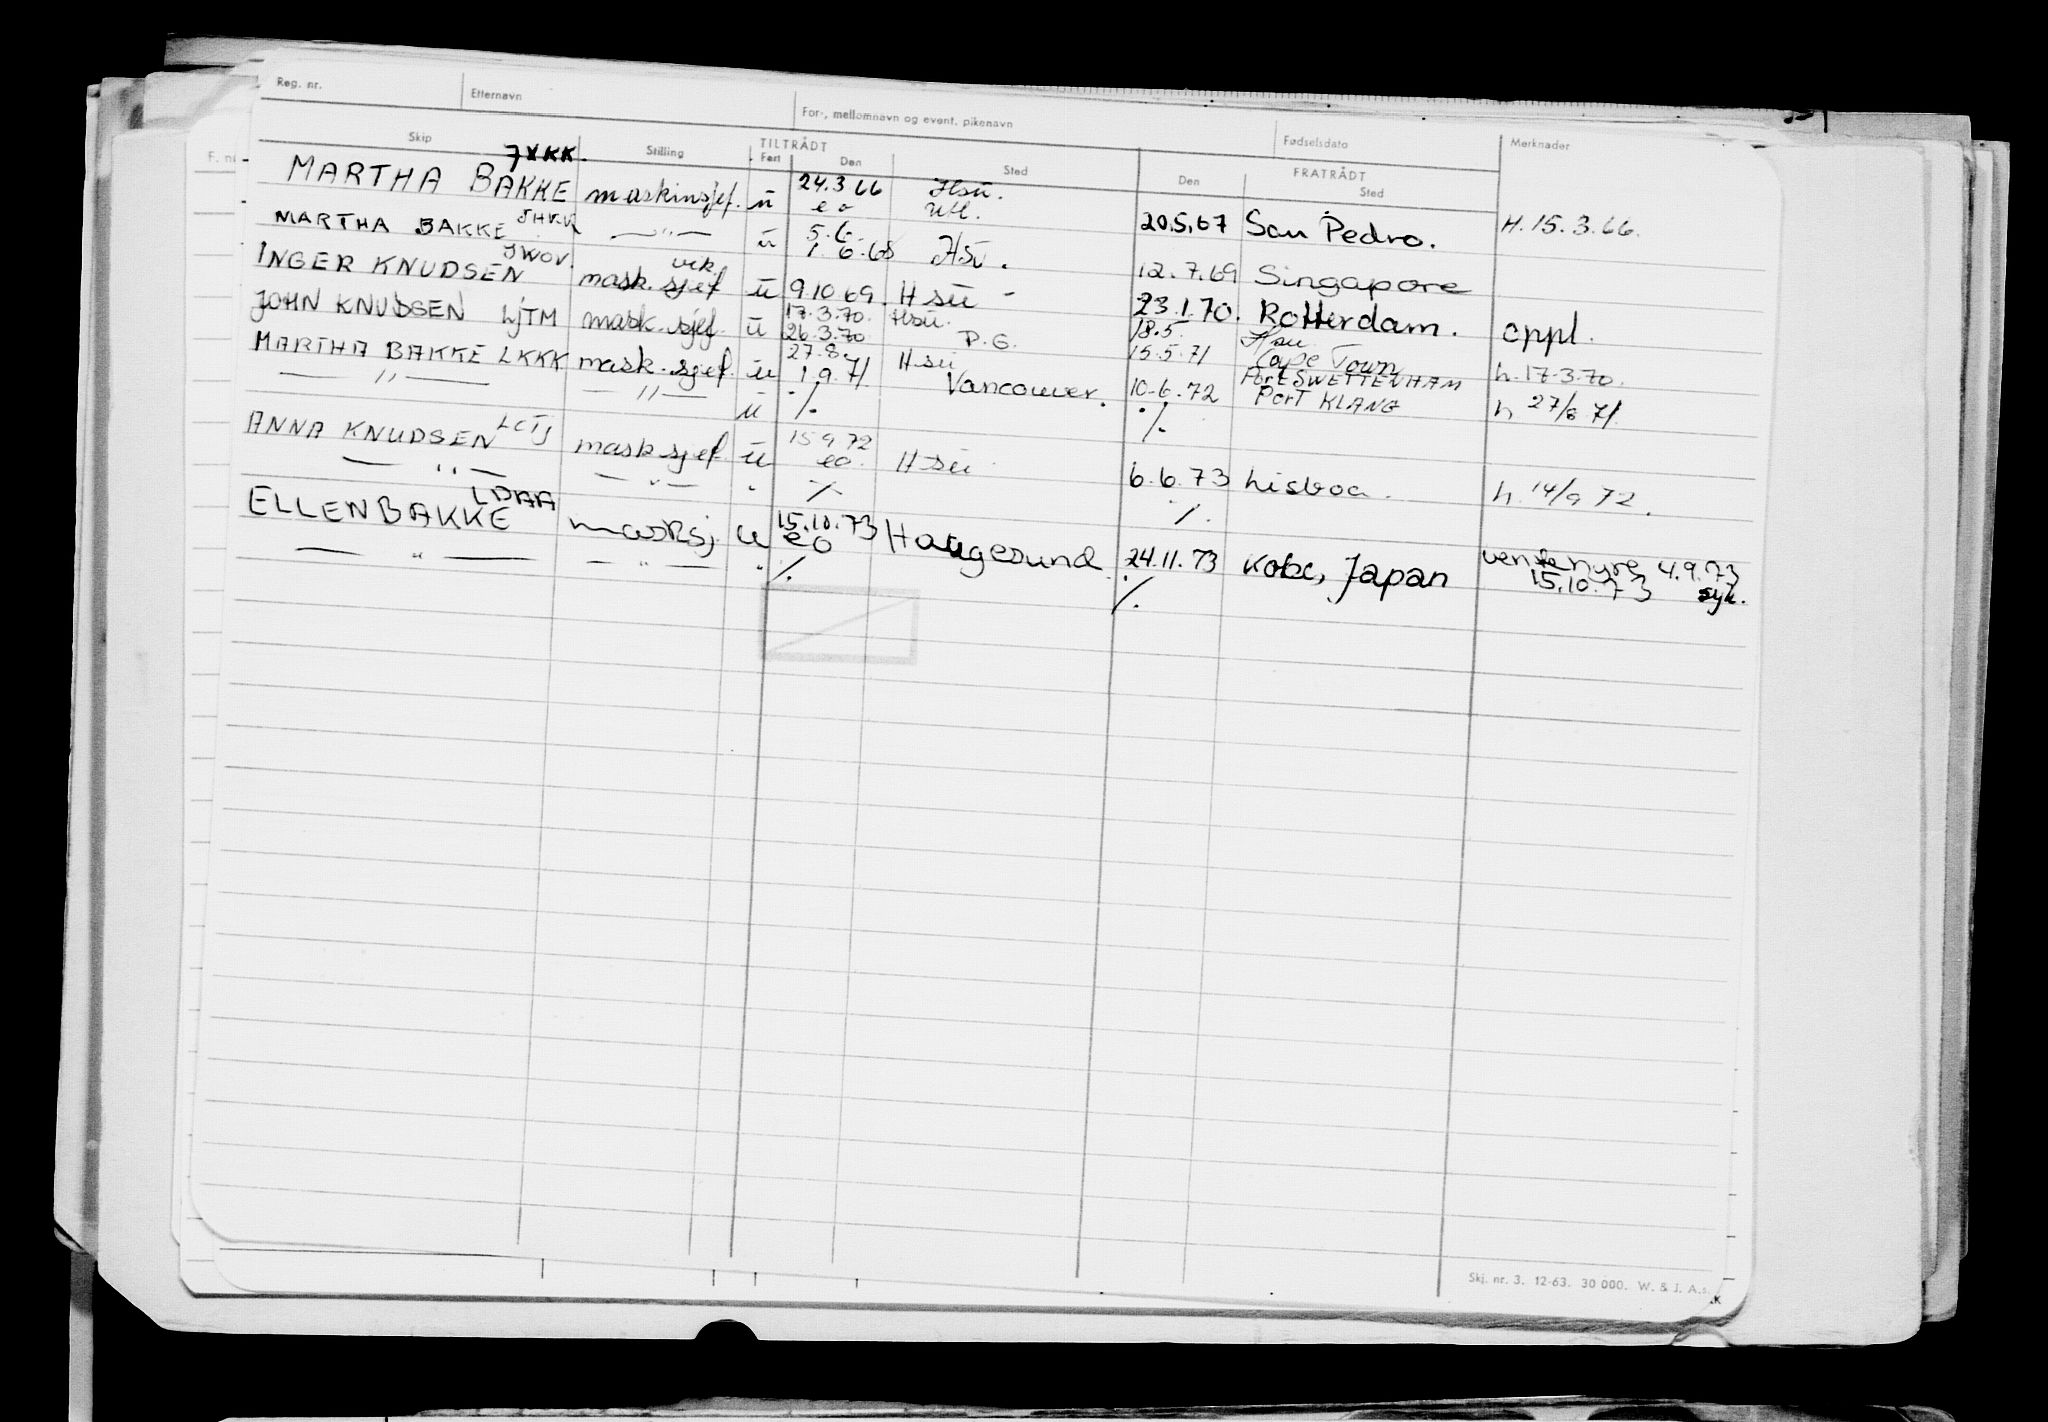 Reg. nr. Etternavn For-, mellomnavn og event. pikenavn Fødselsdato Merknader
Skip Stilling TILTRÅDT FRATRÅDT
Fart Den Sted Den Sted
JXKK.
MARTHA BAKKE maskinsjef. u 24.3 66 Hsu. 20.5.67 San Pedro. H. 15.3.66.
eo utl.
MARTHA BAKKE —"— u 5.6. Hsu. 12.7.69 Singapore
1.6.68
JWOV. vik.
INGER KNUDSEN mask. sjef u 9.10 69. Hsu - 23.1.70. Rotterdam. oppl.
JOHN KNUDSEN LJTM mask. sjef. u 17.3.70. Hsu. 18.5. Hsu h. 17.3.70.
26.3.70 P.G. 15.5.71 Cape Town
MARTHA BAKKE LKKK mask. sjef. u 27.8. Hsu 10.6.72 PortSWETTENHAM h 27/8 71.
1.9.71 Vancouver. PorT KLANG
—"— —"— u ·/. ·/.
ANNA KNUDSEN LCTJ mask sjef. u 15 9 72 Hsu 6.6.73 Lisboa. h. 14/9 72.
eo.
—"— —"— " ·/. ·/.
LDAA
ELLEN BAKKE masksj. u 15.10.73 Haugesund. 24.11.73 Kobe, Japan 4.9.73
eo 15.10.73 syk.
—"— —"— " ·/. ·/.
Skj. nr. 3. 12-63. 30 000. W. & J. A.s.